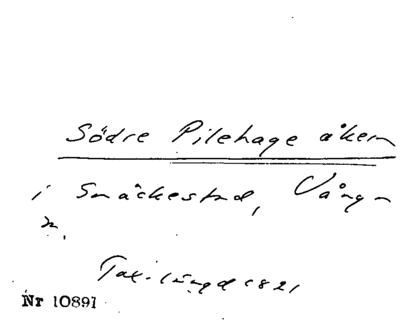 Södre Pilehage åkern
i Snäckestad, Vånga
sn.
Tax.längd 1821
Nr 10891